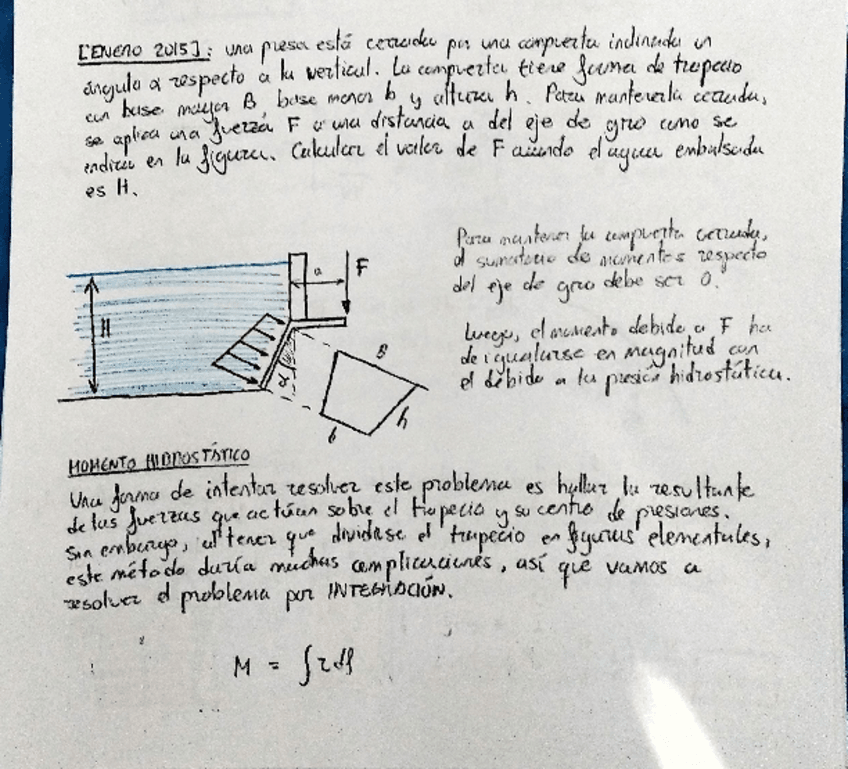 [ENERO 2015]: una presa está cerrada por una compuerta inclinada un
ángulo α respecto a la vertical. La compuerta tiene forma de trapecio
con base mayor B, base menor b y altura h. Para mantenerla cerrada,
se aplica una fuerza F a una distancia a del eje de giro como se
indica en la figura. Calcular el valor de F cuando el agua embalsada
es H.
Para mantener la compuerta cerrada,
el sumatorio de momentos respecto
del eje de giro debe ser 0.
Luego, el momento debido a F ha
de igualarse en magnitud con
el debido a la presión hidrostática.
a
F
H
α
B
h
b
MOMENTO HIDROSTÁTICO
Una forma de intentar resolver este problema es hallar la resultante
de las fuerzas que actúan sobre el trapecio y su centro de presiones.
Sin embargo, al tener que dividirse el trapecio en figuras elementales,
este método daría muchas complicaciones, así que vamos a
resolver el problema por INTEGRACIÓN.
M = ∫ r df